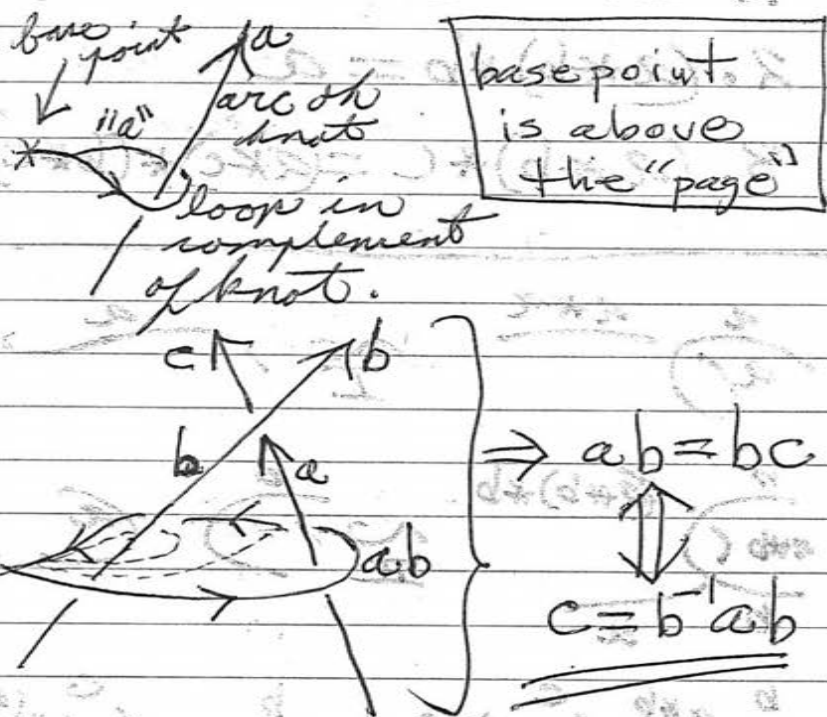 base
point
"a"
a
arc on
knot
loop in
complement
of knot.
basepoint
is above
the "page"
c
b
b
a
ab
⇒ ab=bc
⇕
c=b⁻¹ab